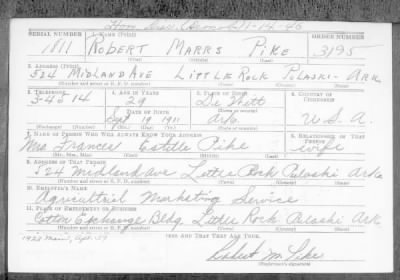 SERIAL NUMBER 1. NAME (Print) ORDER NUMBER
1811 ROBERT MARRS PIKE 3195
(First) (Middle) (Last)
2. ADDRESS (Print)
524 MIDLAND AVE LITTLE ROCK PULASKI ARK
(Number and street or R. F. D. number) (Town) (County) (State)
3. TELEPHONE 4. AGE IN YEARS 5. PLACE OF BIRTH 6. COUNTRY OF CITIZENSHIP
3-4514 29 De Witt
DATE OF BIRTH
Sept 19 1911 Ark. U. S. A.
(Exchange) (Number) (Mo.) (Day) (Yr.) (State or country)
7. NAME OF PERSON WHO WILL ALWAYS KNOW YOUR ADDRESS 8. RELATIONSHIP OF THAT PERSON
Mrs Frances Estille Pike wife
(Mr., Mrs., Miss) (First) (Middle) (Last)
9. ADDRESS OF THAT PERSON
524 Midland Ave Little Rock Pulaski Ark
(Number and street or R. F. D. number) (Town) (County) (State)
10. EMPLOYER'S NAME
Agricultural Marketing Service
11. PLACE OF EMPLOYMENT OR BUSINESS
Cotton Exchange Bldg. Little Rock Pulaski Ark
(Number and street or R. F. D. number) (Town) (County) (State)
AND THAT THEY ARE TRUE.
Robert M. Pike
(Registrant's signature)